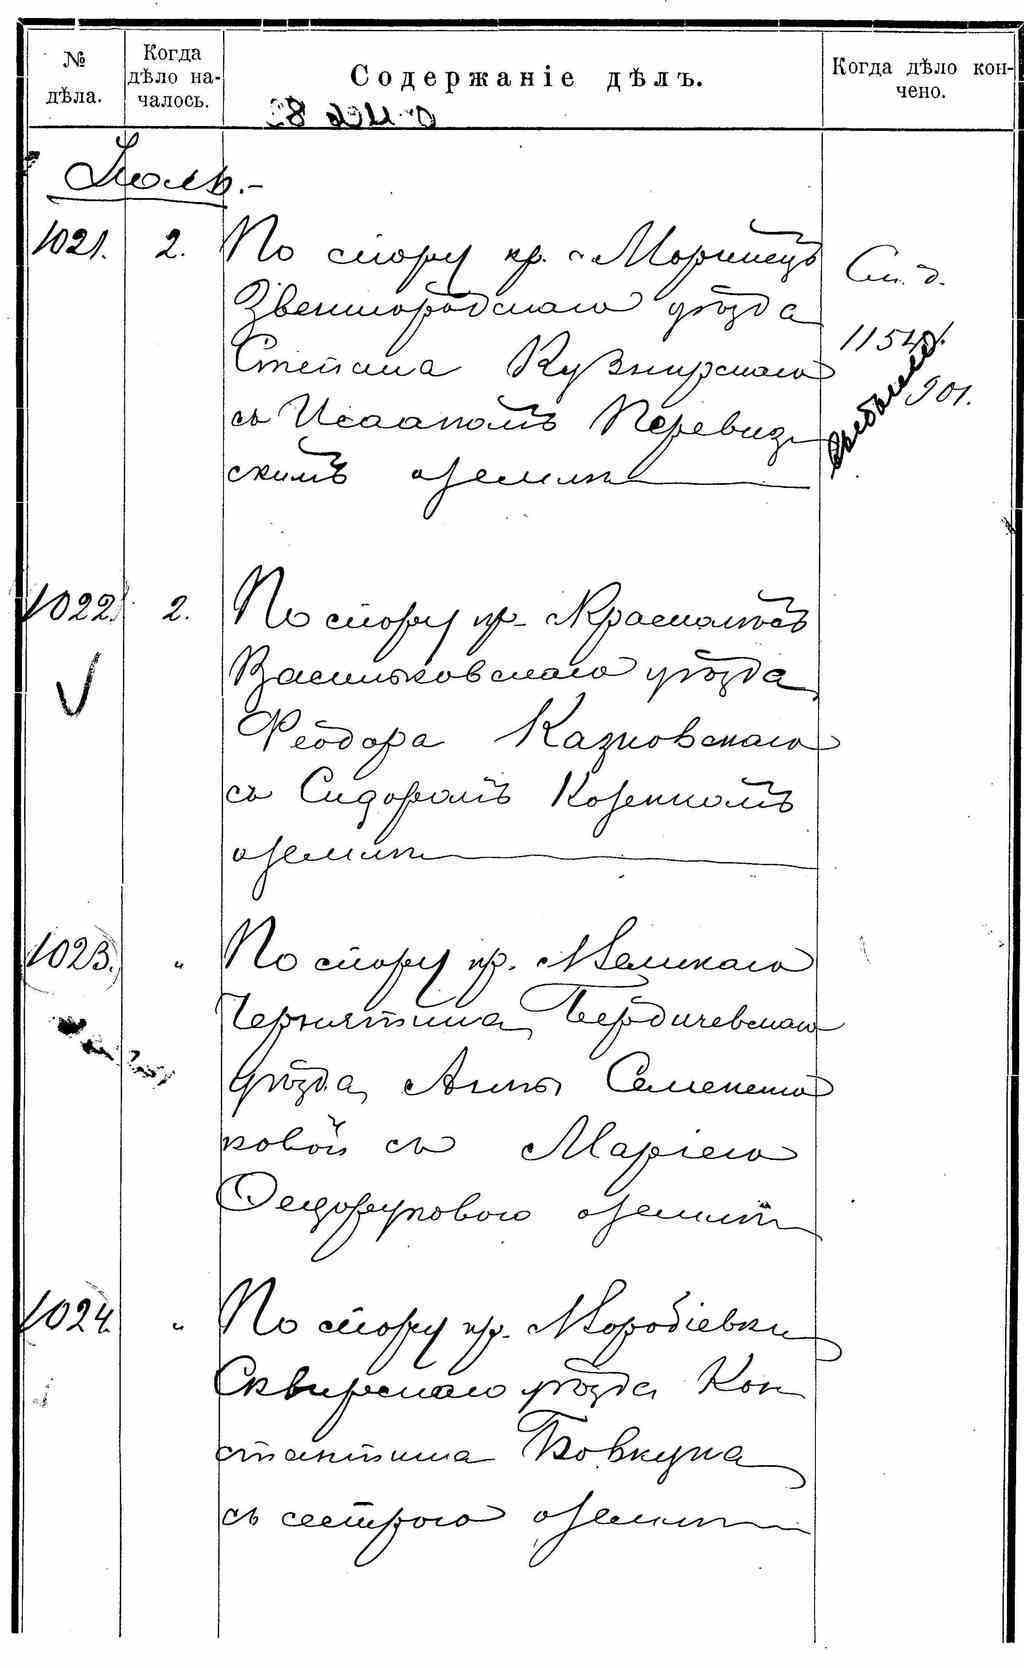 № дѣла.
Когда дѣло началось.
Содержаніе дѣлъ.
Когда дѣло кончено.
Іюль.-
1021. 2. По спору кр. с. Моринецъ
Звенигородскаго уѣзда
Степана Кузнирскаго
съ Исаакомъ Перевиз-
скимъ о землѣ
См. д.
1154/
901.
выбыло
1022. 2. По спору кр. Краснолѣсъ
Васильковскаго уѣзда
Феодора Казновскаго
съ Сидоромъ Козенкомъ
о землѣ
1023. " По спору кр. Великаго
Чернятина, Бердичевскаго
уѣзда, Анны Семенешо
ковой съ Маріею
о землѣ
1024. " По спору кр. Воробіевки
Сквирскаго уѣзда Кон
стантина Бовкуна
съ сестрою о землѣ